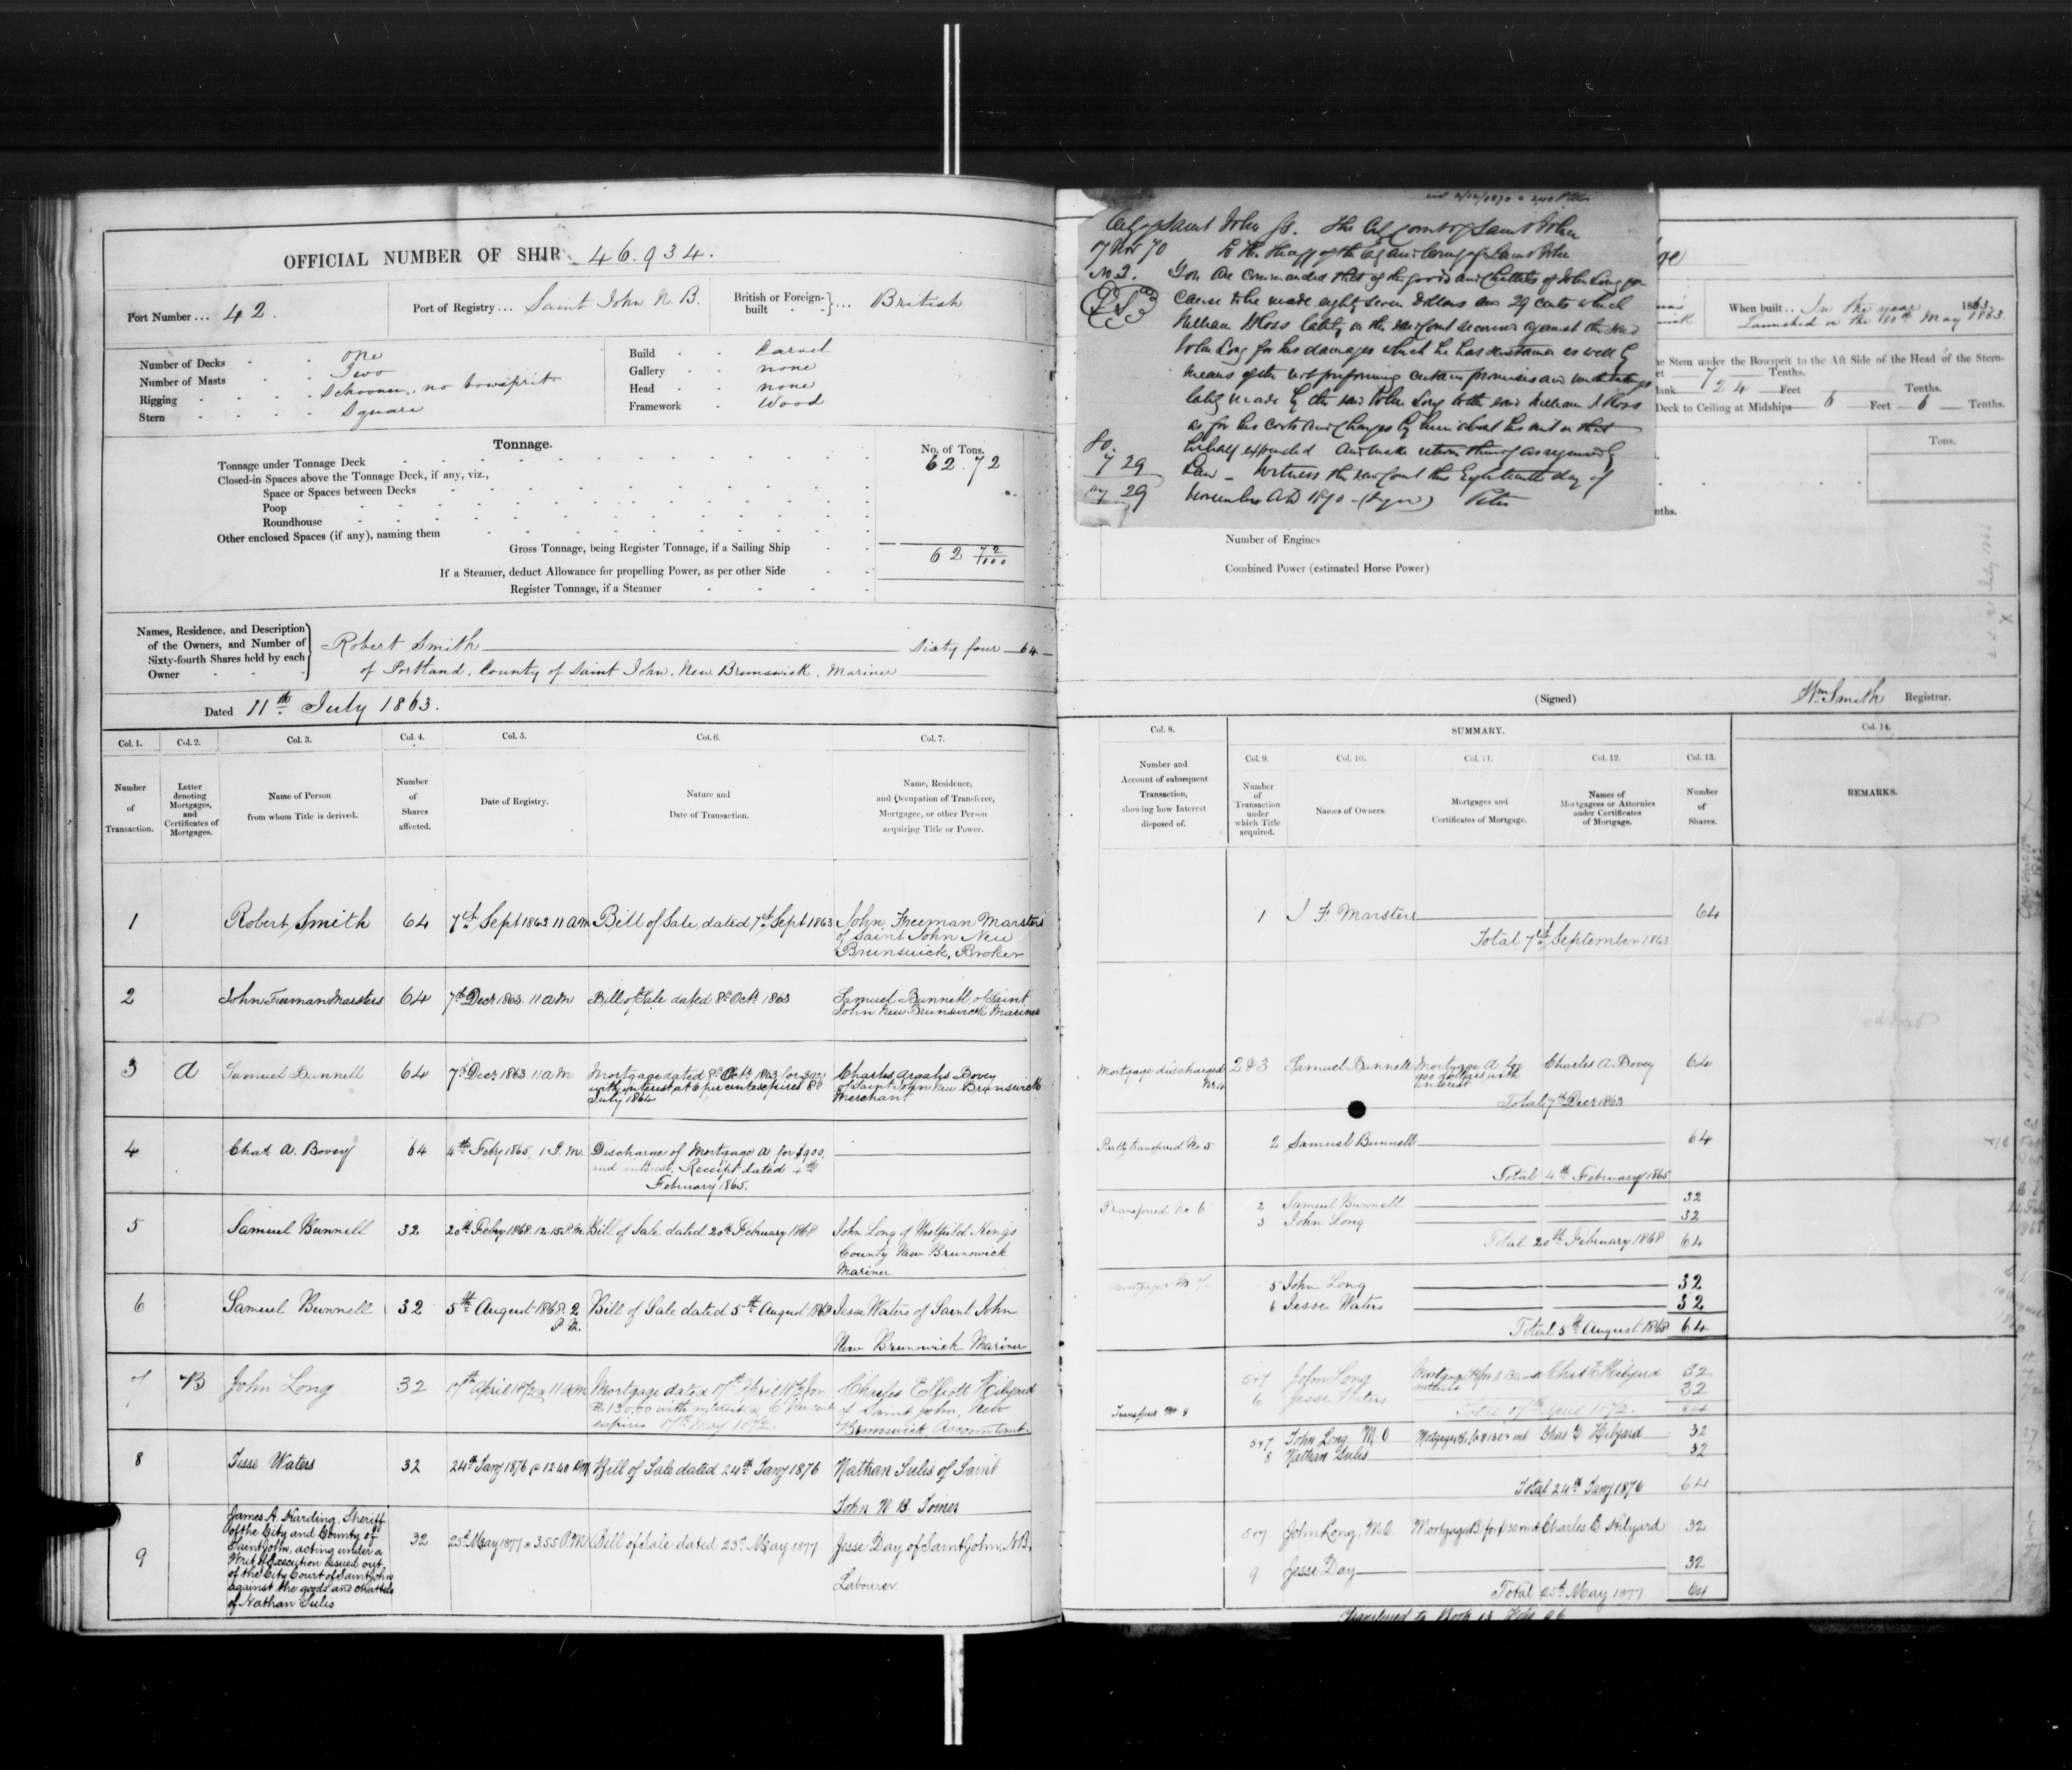 OFFICIAL NUMBER OF SHIP 46.934.
Port Number ... 42.
Port of Registry ... Saint John N. B.
British or Foreign-built ... British
Number of Decks - - One
Number of Masts - - Two
Rigging - - - - Schooner, no bowsprit
Stern - - - - Square
Build - - Carvel
Gallery - - none
Head - - none
Framework - Wood
Tonnage.
No. of Tons.
Tonnage under Tonnage Deck 62.72
Closed-in Spaces above the Tonnage Deck, if any, viz.,
Space or Spaces between Decks
Poop
Roundhouse
Other enclosed Spaces (if any), naming them
Gross Tonnage, being Register Tonnage, if a Sailing Ship 62 72/100
If a Steamer, deduct Allowance for propelling Power, as per other Side
Register Tonnage, if a Steamer
Names, Residence, and Description
of the Owners, and Number of
Sixty-fourth Shares held by each
Owner
Robert Smith Sixty four 64
of Portland, County of Saint John, New Brunswick, Mariner
Dated 11th July 1863.
Col. 1. Col. 2. Col. 3. Col. 4. Col. 5. Col. 6. Col. 7.
Number of Transaction.
Letter denoting Mortgages, and Certificates of Mortgages.
Name of Person from whom Title is derived.
Number of Shares affected.
Date of Registry.
Nature and Date of Transaction.
Name, Residence, and Occupation of Transferee, Mortgagee, or other Person acquiring Title or Power.
1 Robert Smith 64 7th Sept 1863 11 am Bill of Sale, dated 7th Sept 1863 John Freeman Marsters
of Saint John New
Brunswick, Broker
2 John Freeman Marsters 64 7th Decr 1863. 11 am Bill of Sale dated 8th Octr 1863 Samuel Bunnell of Saint
John New Brunswick Mariner
3 A Samuel Bunnell 64 7th Decr 1863 11 am Mortgage dated 8th Octr 1863 for $900 Charles Bovey
with interest at 6 per cent expires 8th of Saint John New Brunswick
July 1864 Merchant
4 Chas A. Bovey 64 4th Feby 1865, 1 P.M. Discharge of Mortgage A for $900.
and interest. Receipt dated 4th
February 1865.
5 Samuel Bunnell 32 20th Feby 1868. 12.15 P.M. Bill of Sale dated 20th February 1868 John Long of Westfield Kings
County New Brunswick
Mariner
6 Samuel Bunnell 32 5th August 1868 2 P.M. Bill of Sale dated 5th August 1868 Jesse Waters of Saint John
New Brunswick Mariner
7 B John Long 32 17th April 1872 @ 11 am Mortgage dated 17th April 1872 for Charles Elliott Hilyard
$130.00 with interest @ 6 per cent of Saint John, New
expires 17th May 1872. Brunswick Accountant.
8 Jesse Waters 32 24th Jany 1876 @ 12 40 PM Bill of Sale dated 24th Jany 1876 Nathan Sulis of Saint
John N B Joiner
9 James A. Harding, Sheriff
of the City and County of
Saint John, acting under a
Writ of Execution issued out
of the City Court of Saint John
against the goods and chattels
of Nathan Sulis
32 25th May 1877 @ 3.55 P.M. Bill of Sale dated 23rd May 1877 Jesse Day of Saint John, N.B.
Labourer
City of Saint John Ss. The City Court of Saint John
17 Nov 70 To the Sheriff of the City and County of Saint John
No 2. You are commanded that of the goods and Chattels of John Long you
cause to be made eighty seven Dollars and 29 cents which
William J Ross lately in the said Court recovered against the said
John Long for his damages which he has sustained as well by
means of the not performing certain promises and undertakings
lately made by the said John Long to the said William J. Ross
as for his costs and charges by him about his suit in that
behalf expended And make return thereof as required by
Law - Witness the said Court this Eighteenth day of
November AD 1870 - (signed) Peters
80.
7 29
87 29
When built .. In the year 1863.
Launched on the 10th May 1863.
he Stem under the Bowsprit to the Aft Side of the Head of the Stern-
7 Tenths.
24 Feet Tenths.
Deck to Ceiling at Midships 6 Feet 6 Tenths.
Tons.
Number of Engines
Combined Power (estimated Horse Power)
(Signed) Wm Smith Registrar.
Col. 8. SUMMARY. Col. 14.
Col. 9. Col. 10. Col. 11. Col. 12. Col. 13.
Number and Account of subsequent Transaction, showing how Interest disposed of.
Number of Transaction under which Title acquired.
Names of Owners.
Mortgages and Certificates of Mortgage.
Names of Mortgagees or Attornies under Certificates of Mortgage.
Number of Shares.
REMARKS.
1 J. F. Marsters 64
Total 7th September 1863
Mortgage discharged No 4 2 & 3 Samuel Bunnell Mortgage A for 900 dollars with interest Charles A. Bovey 64
Total 7th Decr 1863
Partly transferred No 5 2 Samuel Bunnell 64
Total 4th February 1865
Transferred No 6 2 Samuel Bunnell 32
5 John Long 32
Total 20th February 1868 64
Mortgage No 7 5 John Long 32
6 Jesse Waters 32
Total 5th August 1868 64
5&7 John Long Mortgage B for $130 and interest Chas E Hilyard 32
6 Jesse Waters 32
Total 17th April 1872. 64
Transfer No 8
5&7 John Long M O Mortgage B. for $130 & int Chas E Hilyard 32
8 Nathan Sulis 32
Total 24th Jany 1876 64
5&7 John Long, M.O. Mortgage B. for $130 & int Charles E. Hilyard 32
9 Jesse Day 32
Total 25th May 1877 64
Transferred to Book 13 Folio 96